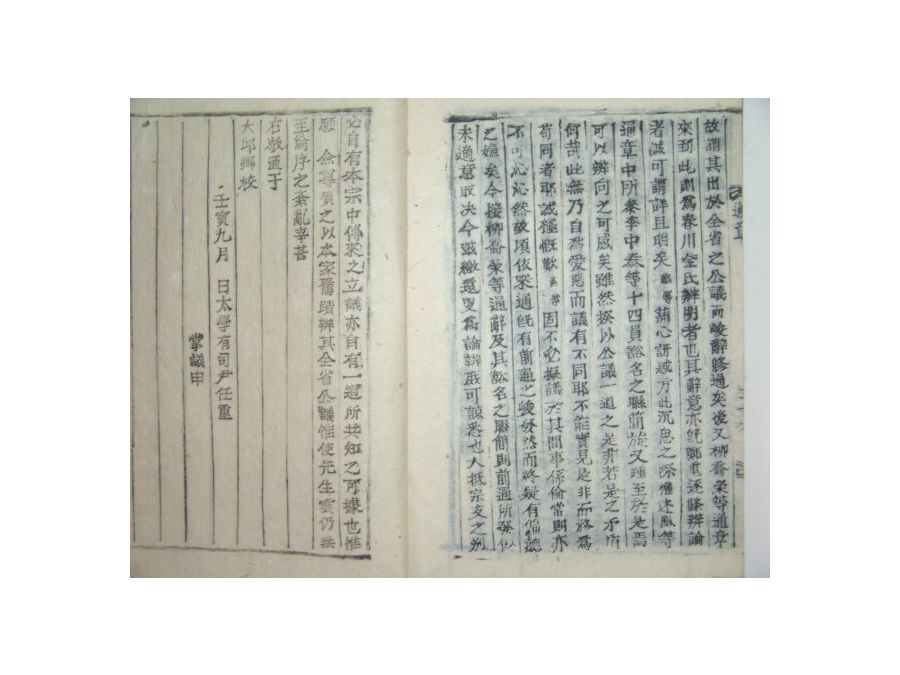 通章
故謂其出於全省之公議而峻辭修通矣後又柳喬榮等通章
來到此則爲春川金氏辨明者也其辭意亦旣鄭重逐條辨論
者誠可謂詳且明矣 鄙等 滿心訝惑方此沉思之深 等
通章中所 李中 等十四員 名之聯簡旋又踵至於是焉
可以辨 之可惑矣雖然 以公議一道之是非若是之矛盾
何哉此無乃自爲愛惡而議有不同耶不能實見是非而 爲
苟同者耶誠極慨歎 鄙等 固不必擬議於其間事係倫常則亦
不可沁沁然故頃依 通旣有前通之峻 然而終疑有偏聽
之嫌矣今接柳喬榮等通辭及其 名之聯簡則前通所發
未適意取決今玆繳還更爲論辨庶可諒悉也大抵宗支之別
必自有本宗中傳來之立議亦自有一道所共知之可據也惟
願 僉尊質之以本家舊蹟辨其全省公議惟使先生雲仍無
至倫序之紊亂幸甚
右敬通于
大邱鄕校
壬寅九月 日太學有司尹任重
掌議申